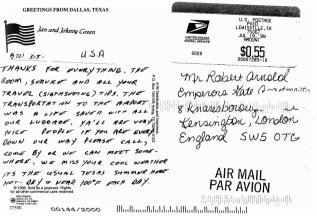 GREETINGS FROM DALLAS, TEXAS
Jan and Johnny Green
U.S.A
THANKS FOR EVERYTHING. THE
ROOM, SERVICE AND ALL YOUR
TRAVEL (SIGHTSEEING) TIPS. THE
TRANSPORTATION TO THE AIRPORT
WAS A LIFE SAVER WITH ALL
OUR LUGGAGE. YA'LL ARE VERY
NICE PEOPLE IF YOU ARE EVER
DOWN OUR WAY PLEASE CALL,
COME BY OR WE CAN MEET SOME-
WHERE. WE MISS YOUR COOL WEATHER
ITS THE USUAL TEXAS SUMMER HERE
HOT-DRY & NEAR 100°F EACH DAY.
© 1998. Sold as a postcard. Rights
for all other commercial uses reserved.
17500
00144/2000
U.S. POSTAGE
PAID
99
AMOUNT
UNITED STATES
POSTAL SERVICE
0000
$0.55
Mr Robert Arnold
Emperors Gate
8 Knaresborough
Kensington, London
England SW5 0TG
AIR MAIL
PAR AVION